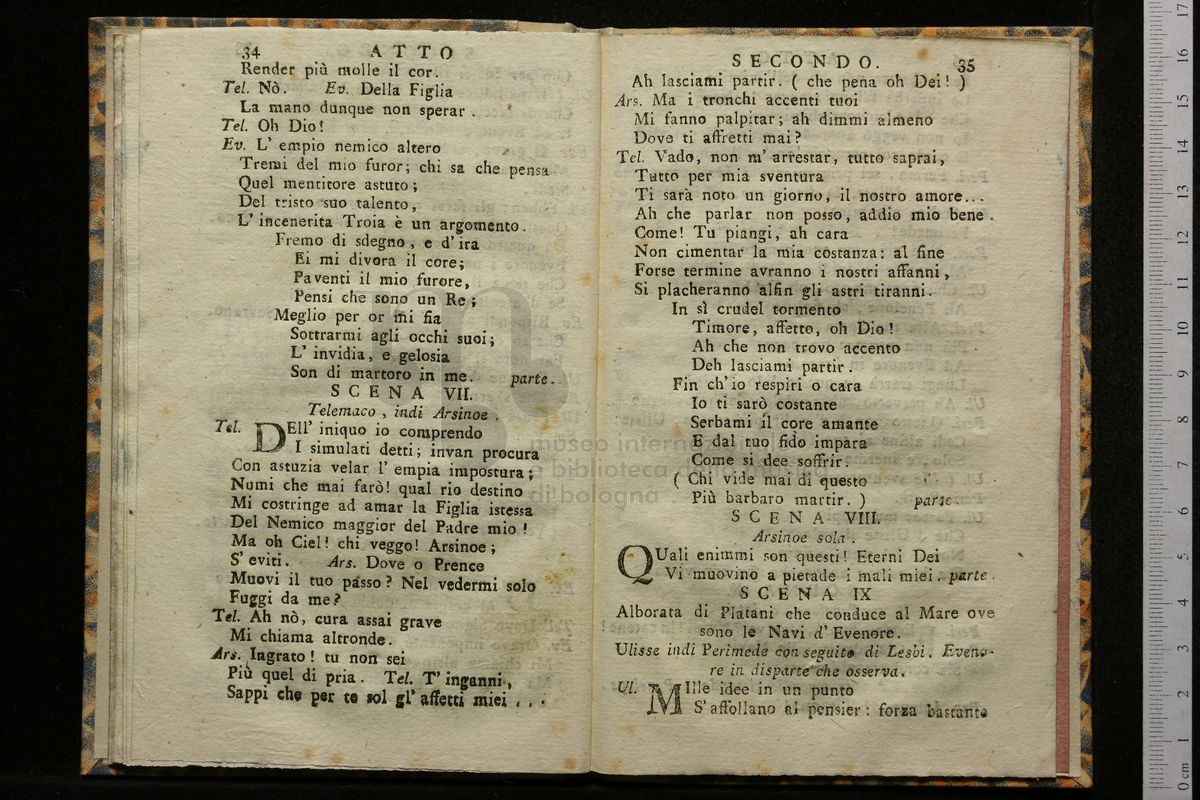 34 ATTO
Render più molle il cor.
Tel. Nò. Ev. Della Figlia
La mano dunque non sperar.
Tel. Oh Dio!
Ev. L' empio nemico altero
Tremi del mio furor; chi sa che pensa
Quel mentitore astuto;
Del tristo suo talento,
L' incenerita Troia è un argomento.
Fremo di sdegno, e d' ira
Ei mi divora il core;
Paventi il mio furore,
Pensi che sono un Re;
Meglio per or mi fia
Sottrarmi agli occhi suoi;
L' invidia, e gelosia
Son di martoro in me. parte.
SCENA VII.
Telemaco, indi Arsinoe.
Tel. DEll' iniquo io comprendo
I simulati detti; invan procura
Con astuzia velar l' empia impostura;
Numi che mai farò! qual rio destino
Mi costringe ad amar la Figlia istessa
Del Nemico maggior del Padre mio!
Ma oh Ciel! chi veggo! Arsinoe;
S' eviti. Ars. Dove o Prence
Muovi il tuo passo? Nel vedermi solo
Fuggi da me?
Tel. Ah nò, cura assai grave
Mi chiama altronde.
Ars. Ingrato! tu non sei
Più quel di pria. Tel. T' inganni,
Sappi che per te sol gl' affetti miei ...
SECONDO. 35
Ah lasciami partir. ( che pena oh Dei! )
Ars. Ma i tronchi accenti tuoi
Mi fanno palpitar; ah dimmi almeno
Dove ti affretti mai?
Tel. Vado, non m' arrestar, tutto saprai,
Tutto per mia sventura
Ti sarà noto un giorno, il nostro amore...
Ah che parlar non posso, addio mio bene.
Come! Tu piangi, ah cara
Non cimentar la mia costanza: al fine
Forse termine avranno i nostri affanni,
Si placheranno alfin gli astri tiranni.
In sì crudel tormento
Timore, affetto, oh Dio!
Ah che non trovo accento
Deh lasciami partir.
Fin ch' io respiri o cara
Io ti sarò costante
Serbami il core amante
E dal tuo fido impara
Come si dee soffrir.
( Chi vide mai di questo
Più barbaro martir. ) parte.
SCENA VIII.
Arsinoe sola.
QUali enimmi son questi! Eterni Dei
Vi muovino a pietade i mali miei. parte.
SCENA IX
Alborata di Platani che conduce al Mare ove
sono le Navi d' Evenore.
Ulisse indi Perimede con seguito di Lesbi. Eveno-
re in disparte che osserva.
Ul. MIlle idee in un punto
S' affollano al pensier: forza bastante
museo internazionale
e biblioteca della musica
di bologna
0 cm 1 2 3 4 5 6 7 8 9 10 11 12 13 14 15 16 17